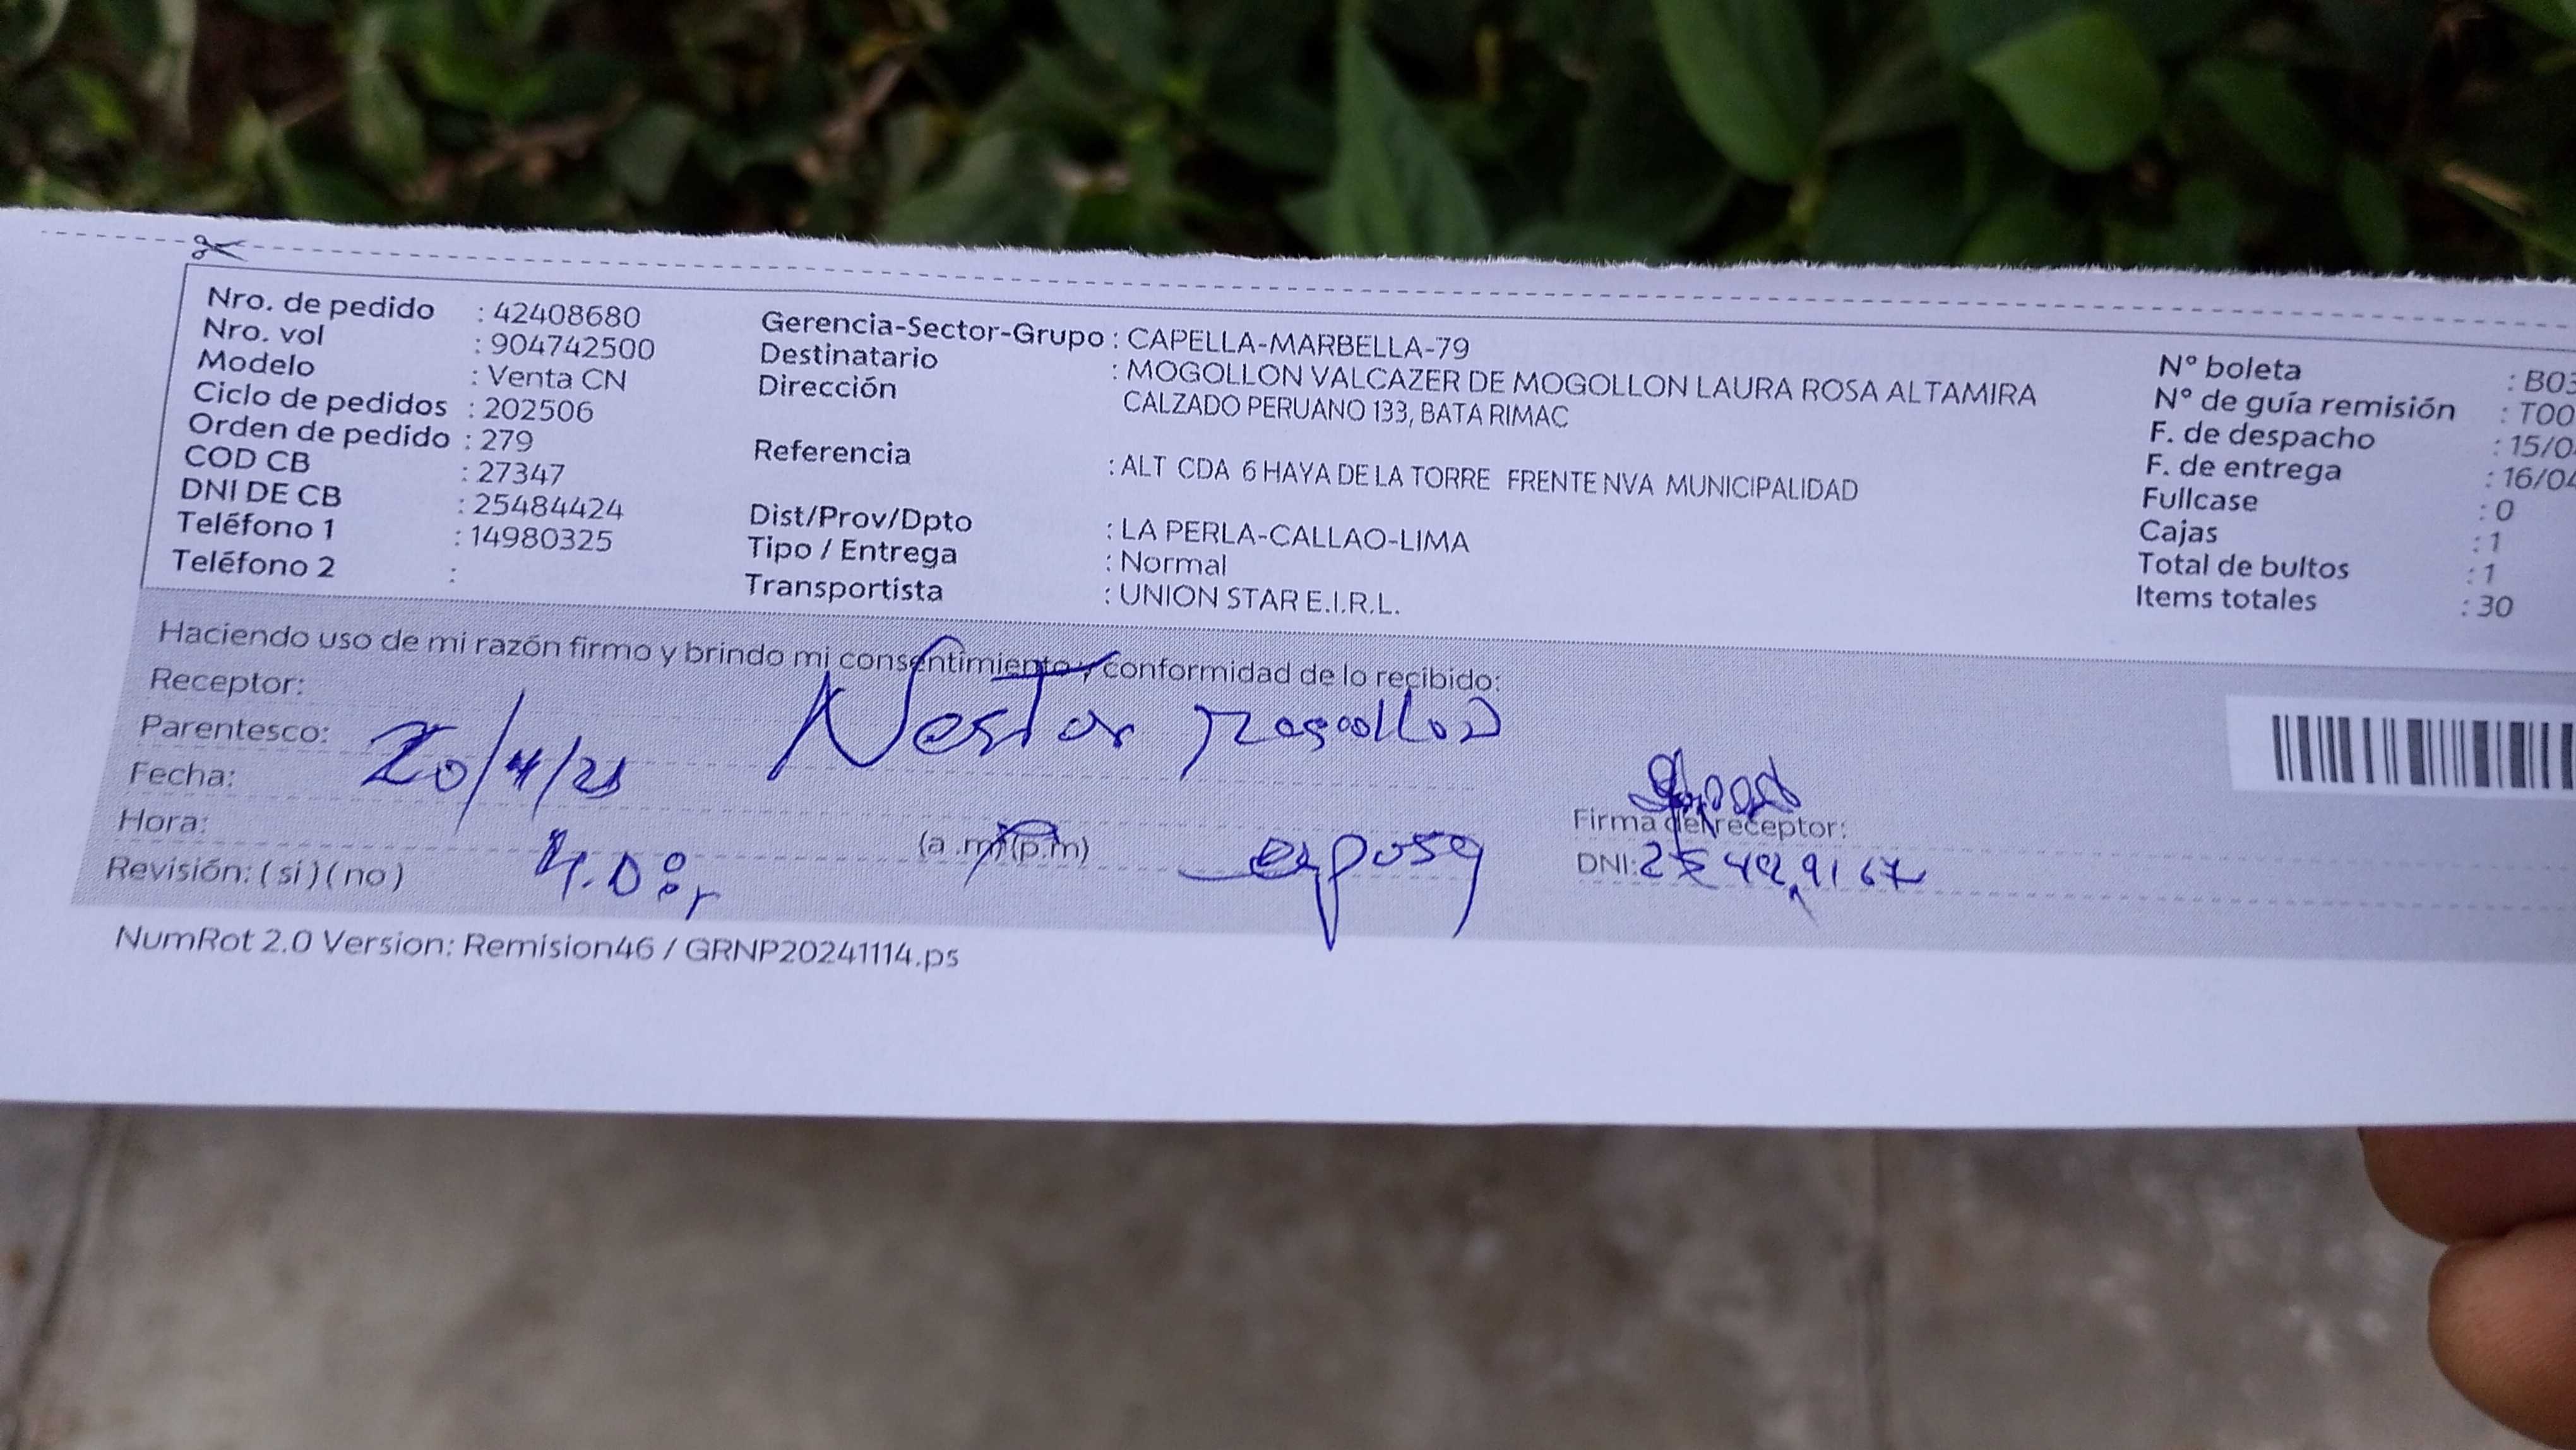 Nro. de pedido : 42408680
Nro. vol : 904742500
Modelo : Venta CN
Ciclo de pedidos : 202506
Orden de pedido : 279
COD CB : 27347
DNI DE CB : 25484424
Teléfono 1 : 14980325
Teléfono 2 :
Gerencia-Sector-Grupo : CAPELLA-MARBELLA-79
Destinatario : MOGOLLON VALCAZER DE MOGOLLON LAURA ROSA ALTAMIRA
Dirección CALZADO PERUANO 133, BATA RIMAC
Referencia : ALT CDA 6 HAYA DE LA TORRE FRENTE NVA MUNICIPALIDAD
Dist/Prov/Dpto : LA PERLA-CALLAO-LIMA
Tipo / Entrega : Normal
Transportista : UNION STAR E.I.R.L.
N° boleta : B03
N° de guía remisión : T00
F. de despacho : 15/0
F. de entrega : 16/04
Fullcase : 0
Cajas : 1
Total de bultos : 1
Items totales : 30
Haciendo uso de mi razón firmo y brindo mi consentimiento y conformidad de lo recibido:
Receptor: Nestor Mogollon
Parentesco:
Fecha: 20/4/25
Hora: (a .m) (p.m) esposo
Revisión: ( si ) ( no )
Firma del receptor:
DNI:
NumRot 2.0 Version: Remision46 / GRNP20241114.ps